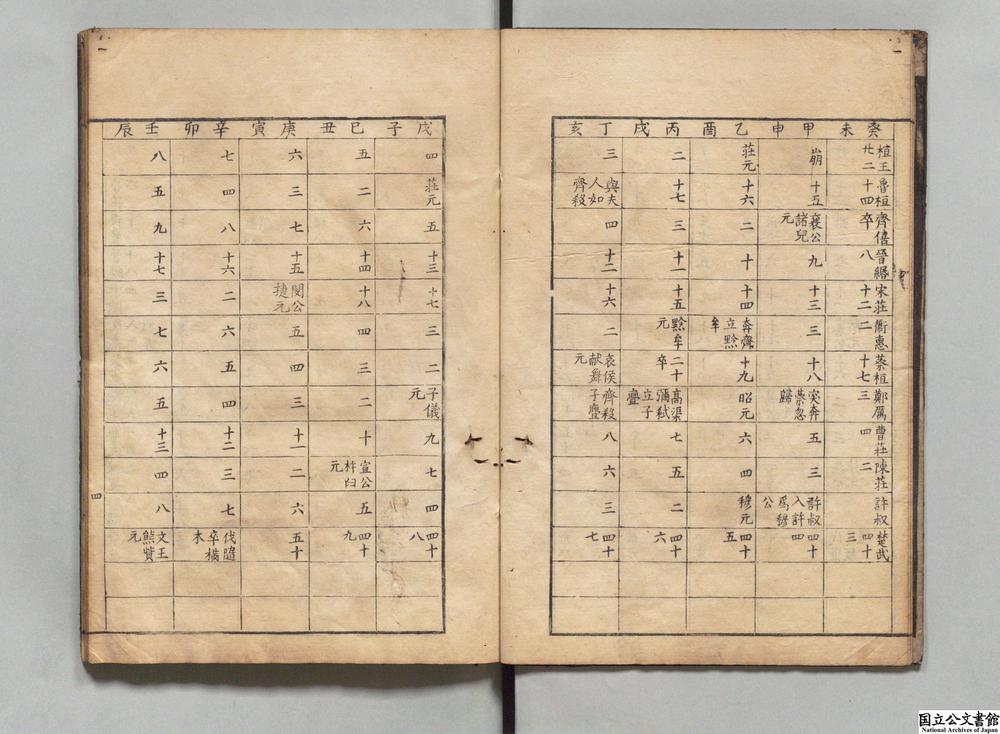 癸未
桓王廿二
魯桓十四
齊僖卒
晉緡八
宋莊十二
衞惠二
蔡桓十七
鄭厲三
曹莊四
陳莊二
許叔
楚武四十三
甲申
崩
十五
襄公諸兒元
九
十三
三
十八
突奔蔡忽歸
五
三
許叔入許爲穆公
四十四
乙酉
莊元
十六
二
十
十四
奔齊立黔牟
十九
昭元
六
四
穆元
四十五
丙戌
二
十七
三
十一
十五
黔牟元
二十卒
高渠彌弒立子亹
七
五
二
四十六
丁亥
三
與夫人如齊殺
四
十二
十六
二
哀侯献舞元
齊殺子亹
八
六
三
四十七
戊子
四
莊元
五
十三
十七
三
二
子儀元
九
七
四
四十八
己丑
五
二
六
十四
十八
四
三
二
十
宣公杵臼元
五
四十九
庚寅
六
三
七
十五
閔公捷元
五
四
三
十一
二
六
五十
辛卯
七
四
八
十六
二
六
五
四
十二
三
七
伐隨卒樠木
壬辰
八
五
九
十七
三
七
六
五
十三
四
八
文王熊貲元
四
国立公文書館
National Archives of Japan